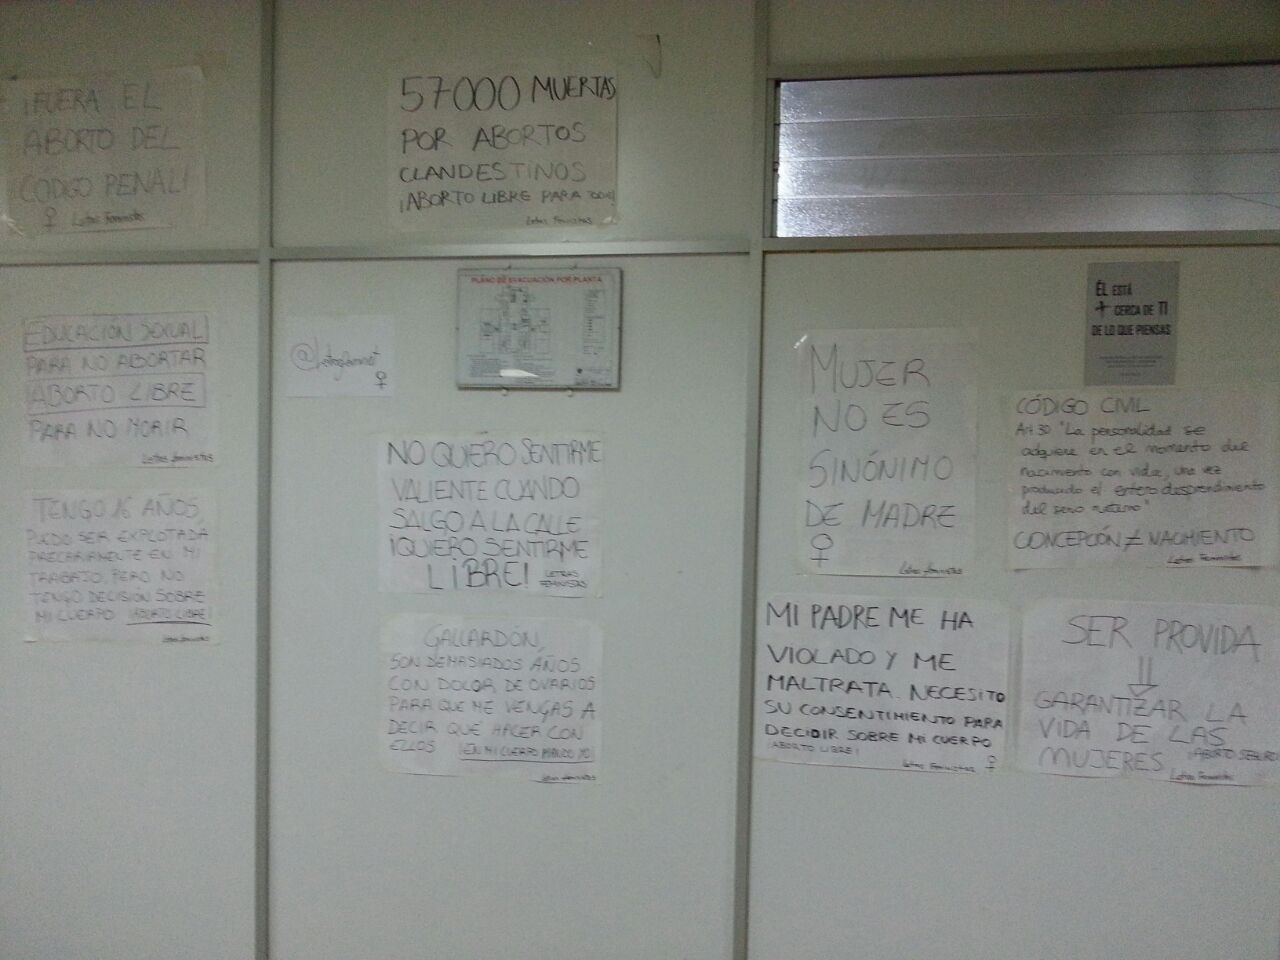 ¡FUERA EL
ABORTO DEL
CÓDIGO PENAL!
Letras Feministas
57000 MUERTAS
POR ABORTOS
CLANDESTINOS
¡ABORTO LIBRE PARA TODAS!
Letras Feministas
EDUCACIÓN SEXUAL
PARA NO ABORTAR
ABORTO LIBRE
PARA NO MORIR
Letras feministas
TENGO 16 AÑOS,
PUEDO SER EXPLOTADA
PRECARIAMENTE EN MI
TRABAJO, PERO NO
TENGO DECISIÓN SOBRE
MI CUERPO ¡ABORTO LIBRE!
Letras feministas
PLANO DE EVACUACIÓN POR PLANTA
NO QUIERO SENTIRME
VALIENTE CUANDO
SALGO A LA CALLE
¡QUIERO SENTIRME
LIBRE! LETRAS
FEMINISTAS
GALLARDÓN,
SON DEMASIADOS AÑOS
CON DOLOR DE OVARIOS
PARA QUE ME VENGAS A
DECIR QUE HACER CON
ELLOS ¡EN MI CUERPO MANDO YO!
Letras feministas
MUJER
NO ES
SINÓNIMO
DE MADRE
Letras feministas
ÉL ESTÁ
+ CERCA DE TI
DE LO QUE PIENSAS
CÓDIGO CIVIL
Art 30 "La personalidad se
adquiere en el momento del
nacimiento con vida, una vez
producido el entero desprendimiento
del seno materno"
CONCEPCIÓN ≠ NACIMIENTO
Letras Feministas
MI PADRE ME HA
VIOLADO Y ME
MALTRATA. NECESITO
SU CONSENTIMIENTO PARA
DECIDIR SOBRE MI CUERPO
¡ABORTO LIBRE!
Letras Feministas
SER PROVIDA
GARANTIZAR LA
VIDA DE LAS
MUJERES ¡ABORTO SEGURO
Letras Feministas